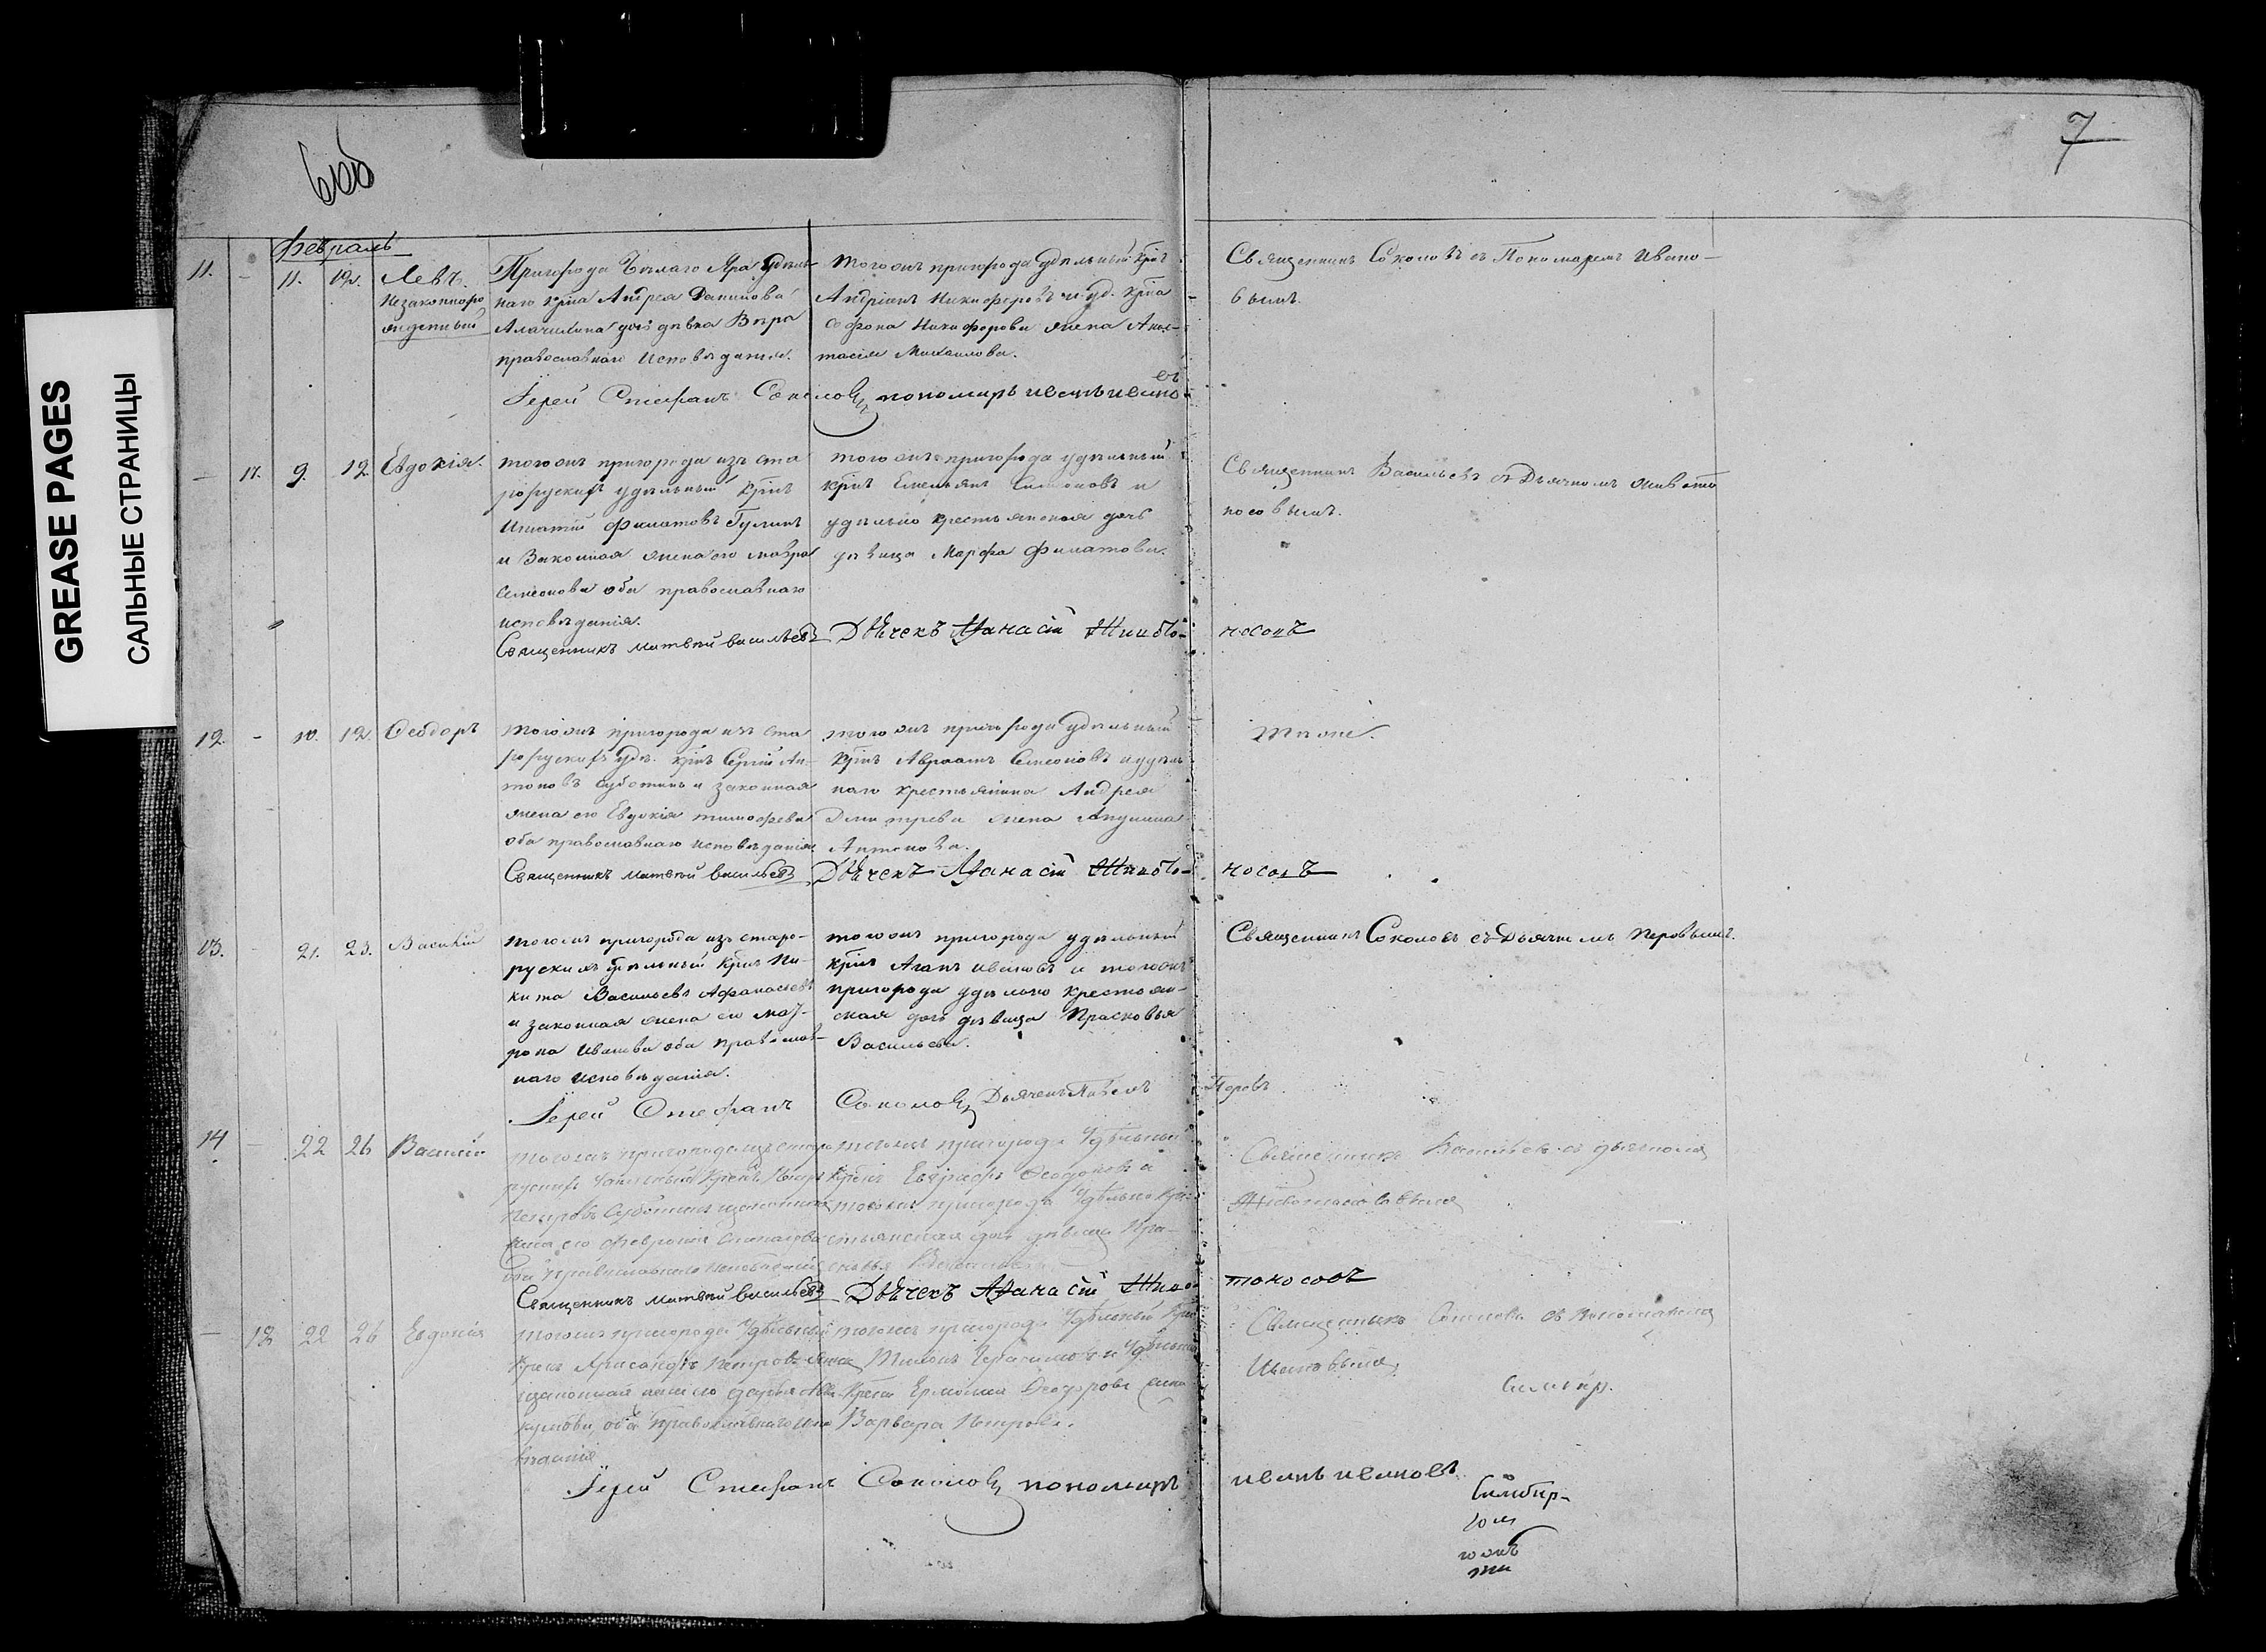 GREASE PAGES
САЛЬНЫЕ СТРАНИЦЫ
6об
7
февраль
11. - 11. 12. Левъ.
незаконноро
жденный
Пригорода Бѣлаго Яра удѣль
наго крна Андрея Данилова
дочь дѣвка Вѣра
православнаго исповѣданія.
тогожъ пригорода удѣльный крнъ
Андріанъ Никифоровъ и уд. крна
Софона Никифорова жена Анас-
тасія Михаилова.
Священникъ Соколовъ съ Пономаремъ Ивано-
вымъ.
Іерей Стефанъ Соколовъ пономарь иванъ ивановъ
- 17. 9. 12. Евдокія.
тогожъ пригорода изъ ста
рорускихъ удѣльный крнъ
Игнатій Филатовъ Гулинъ
и Законная жена его мавра
Семенова оба православнаго
исповѣданія.
тогожъ пригорода удѣльный
крнъ Емельянъ Симоновъ и
удѣльно крестьянская дочь
дѣвица Марфа Филатова.
Священникъ Васильевъ съ Дьячкомъ живото
носовымъ.
Священникъ матвѣй васильевъ Дьячекъ Афанасій Живото-
носовъ
12. - 10. 12. Ѳеодоръ
тогожъ пригорода изъ ста
рорускихъ удѣ. крнъ Сергій Ан-
тоновъ Суботинъ и законная
жена его Евдокія тимофеева
оба православнаго исповѣданія.
тогожъ пригорода удѣльный
крнъ Авраамъ Семеновъ и удѣль
наго крестьянина Андрея
Дмитрева жена Акулина
Антонова.
тѣже.
Священникъ матвѣй васильевъ Дьячекъ Афанасій Живото-
носовъ
13. - 21. 23. Василій
тогожъ пригорода изъ старо-
рускихъ удѣльный крнъ Ни-
кита Васильевъ Афанасьевъ
и законная жена его мат-
рона Иванова оба православ-
наго исповѣданія.
тогожъ пригорода удѣльный
крнъ Агапъ Ивановъ и тогожъ
пригорода удѣльно крестьян-
ская дочь дѣвица Прасковья
Васильева.
Священникъ Соколовъ съ Дьячкомъ Перовымъ.
Іерей Стефанъ Соколовъ Дьячекъ Павелъ Перовъ
14 - 22 26 Василій
тогожъ пригорода изъ старо
рускихъ удѣльный крнъ
Петровъ Суботинъ и законная
жена его Февронія Степанова
оба православнаго исповѣданія
тогожъ пригорода удѣльный
крнъ Евграфъ Ѳеодоровъ и
тогожъ пригорода удѣльно кре-
стьянская дочь дѣвица Пра-
сковья
Священникъ Васильевъ съ дьячкомъ
Животоносовымъ
Священникъ матвѣй васильевъ Дьячекъ Афанасій Живо-
тоносовъ
- 18. 22 26 Евдокія
тогожъ пригорода удѣльный
крнъ Петровъ
и законная жена его Дарья
оба православнаго испо
вѣданія
тогожъ пригорода удѣльный крнъ
Герасимовъ и удѣльнаго
крнъ Ермолая Ѳеодорова жена
Варвара Петрова.
Священникъ Соколовъ съ Пономаремъ
Ивановымъ.
Симбир.
Іерей Стефанъ Соколовъ пономарь иванъ ивановъ
Симбир-